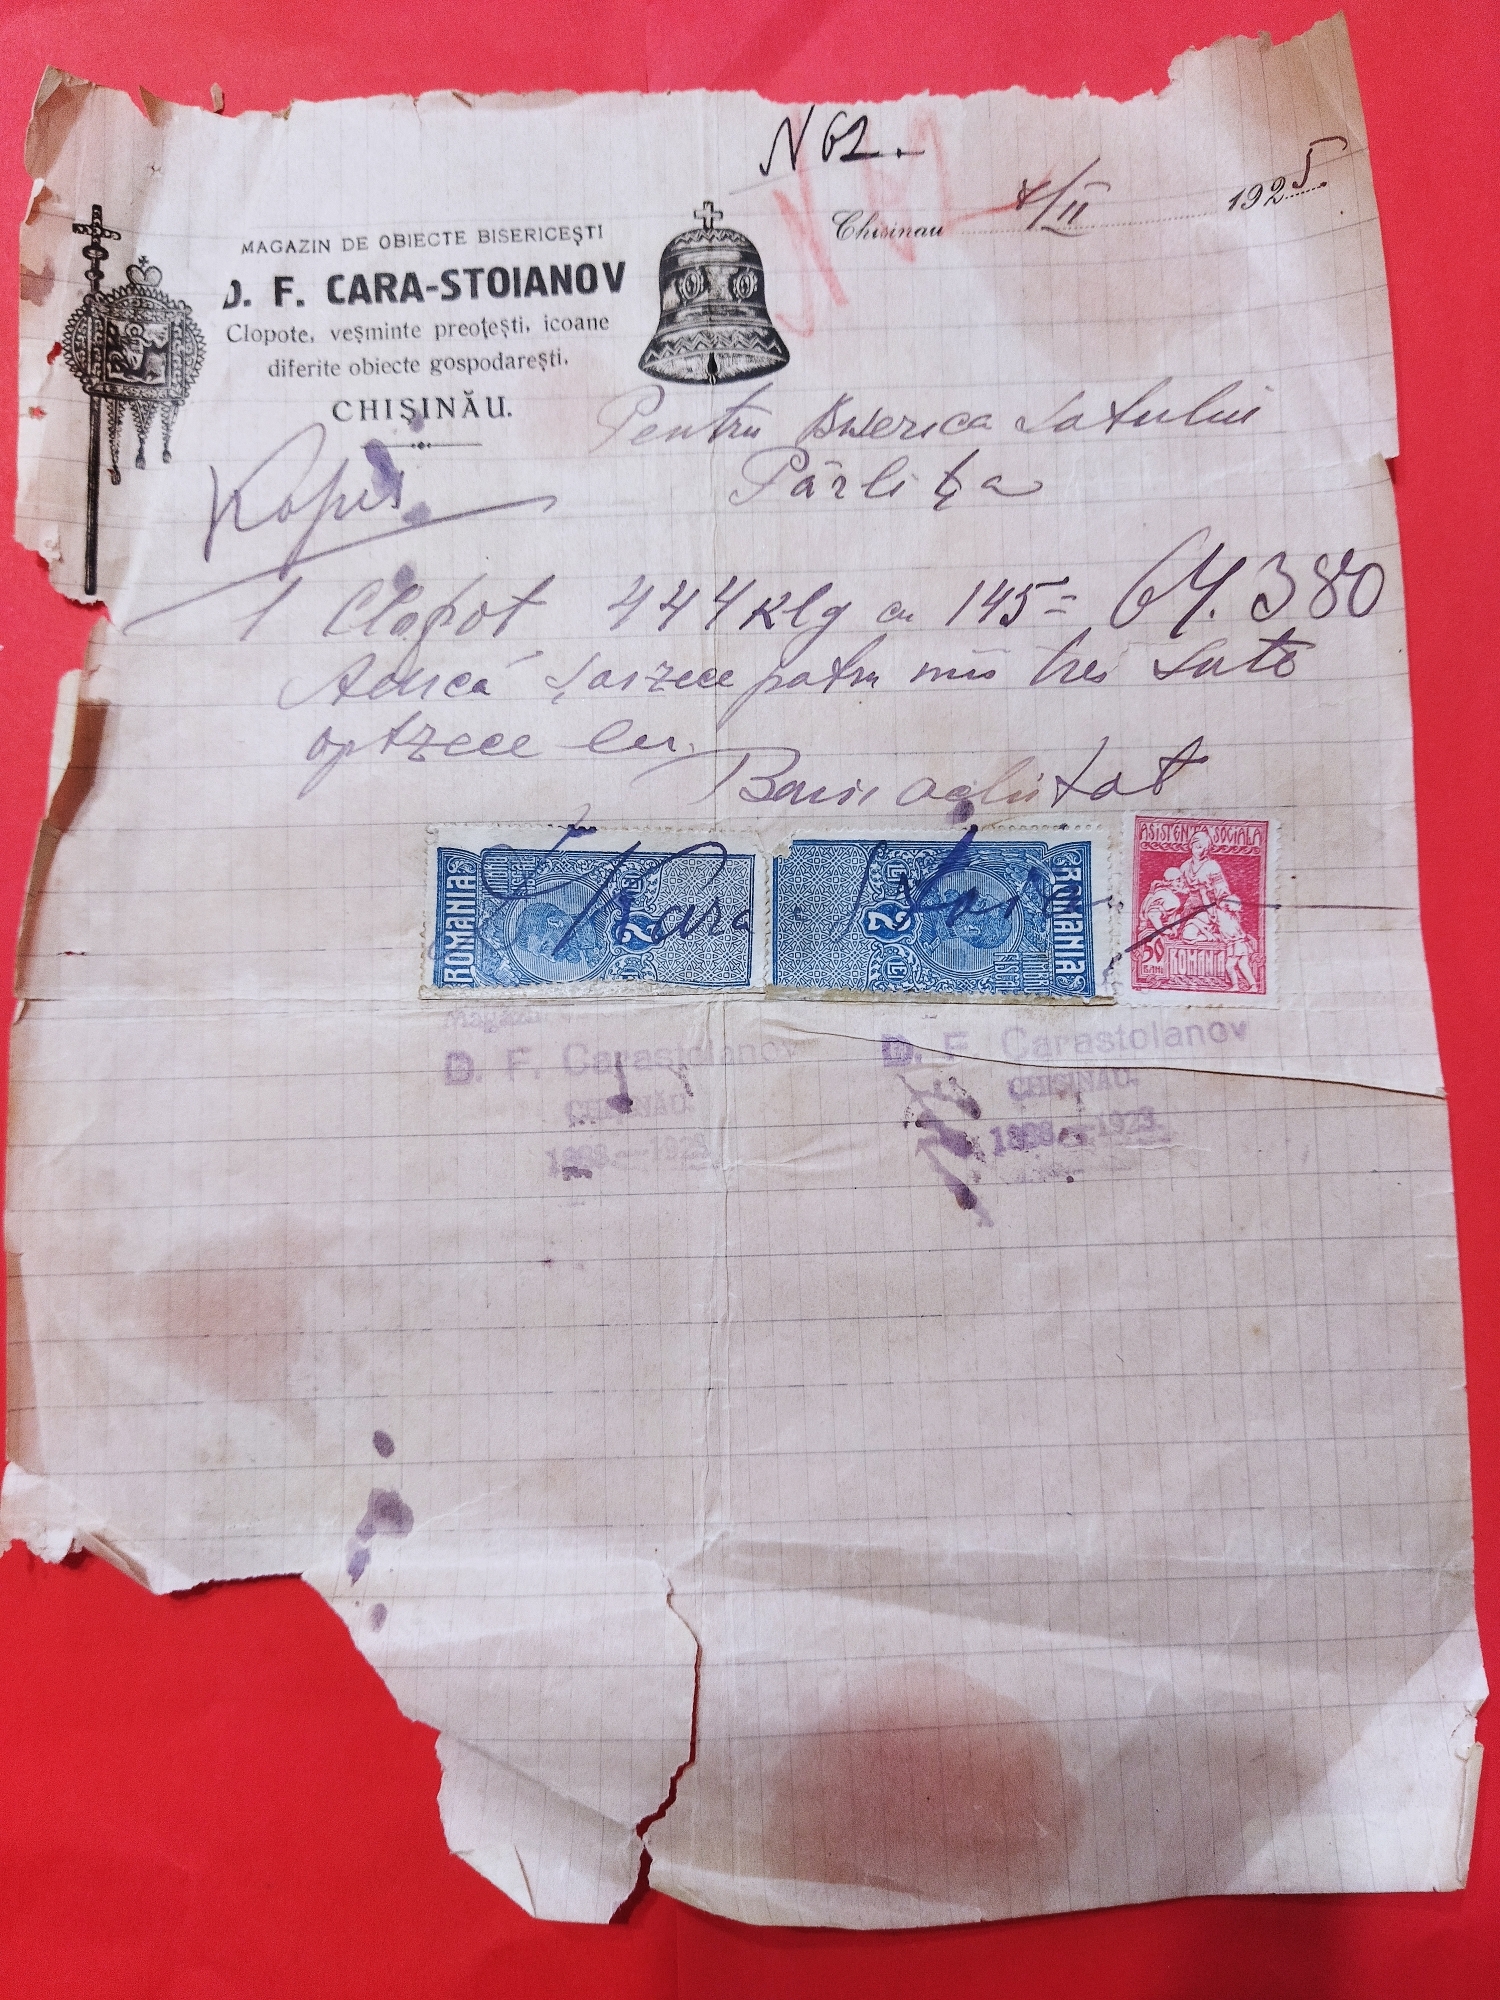 N 62.
Chisinau 4/II 1925.
MAGAZIN DE OBIECTE BISERICEȘTI
D. F. CARA-STOIANOV
Clopote, veșminte preoțești, icoane
diferite obiecte gospodarești.
CHIȘINĂU.
Pentru Biserica Satului
Pârlița
1 Clopot 444 klg cu 145= 64.380
Adică șaizece patru mii trei sute
optzece lei.
Banii achitat
ROMANIA
TIMBRU FISCAL
2 LEI
ROMANIA
TIMBRU FISCAL
2 LEI
ASISTENȚA SOCIALA
50 BANI ROMANIA
Kara Stoianov
Magazin
D. F. Carastoianov
CHIȘINĂU.
1898.—1923
D. F. Carastoianov
CHIȘINĂU.
1898.—1923.